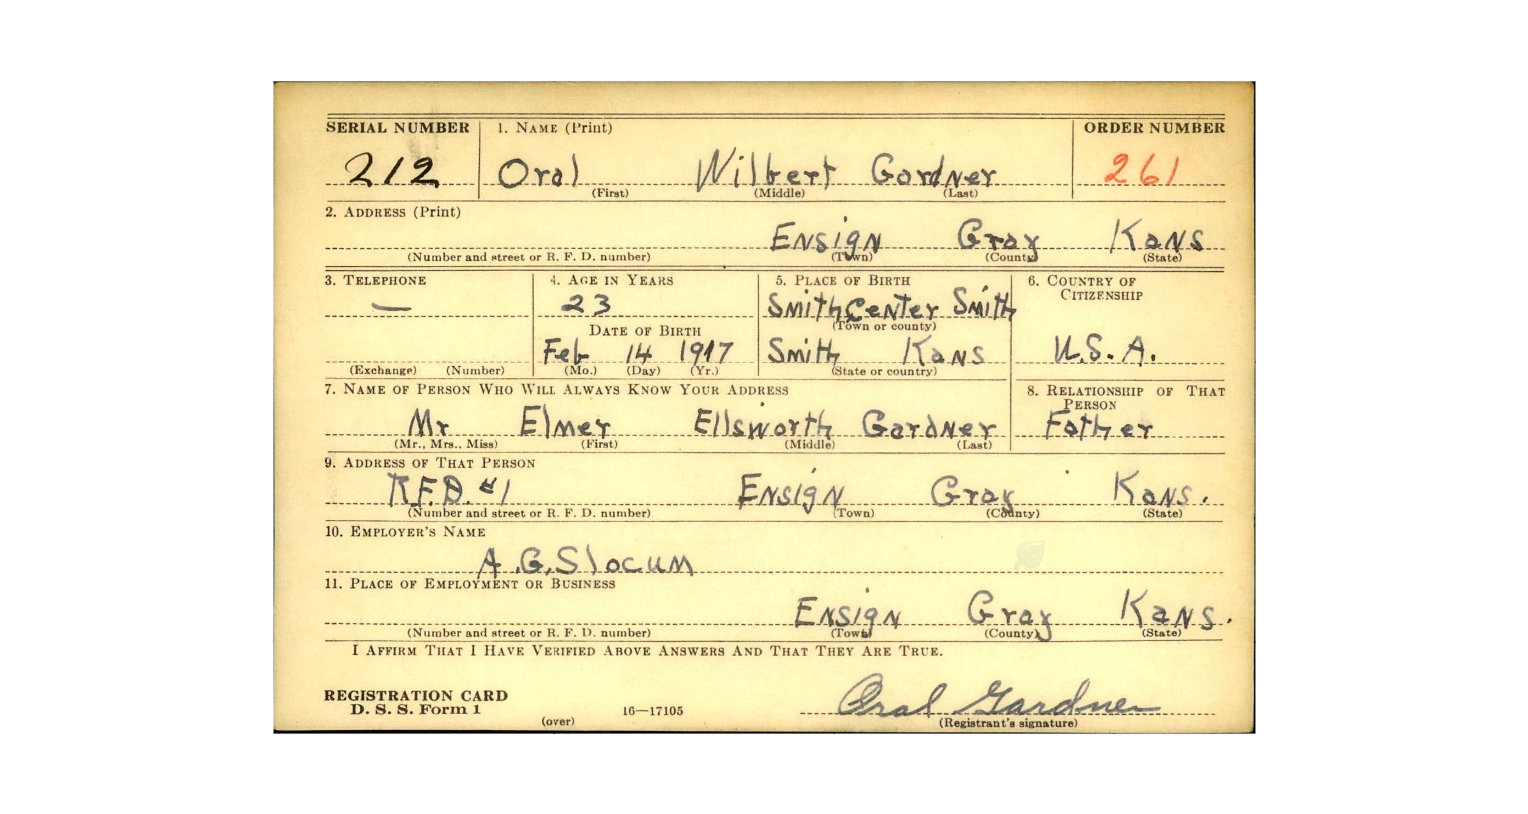 SERIAL NUMBER 1. NAME (Print) ORDER NUMBER
212 Oral Wilbert Gardner 261
(First) (Middle) (Last)
2. ADDRESS (Print)
Ensign Gray Kans
(Number and street or R. F. D. number) (Town) (County) (State)
3. TELEPHONE 4. AGE IN YEARS 5. PLACE OF BIRTH 6. COUNTRY OF
CITIZENSHIP
— 23 Smith Center Smith
DATE OF BIRTH (Town or county)
Feb 14 1917 Smith Kans U.S.A.
(Exchange) (Number) (Mo.) (Day) (Yr.) (State or country)
7. NAME OF PERSON WHO WILL ALWAYS KNOW YOUR ADDRESS 8. RELATIONSHIP OF THAT
PERSON
Mr Elmer Ellsworth Gardner Father
(Mr., Mrs., Miss) (First) (Middle) (Last)
9. ADDRESS OF THAT PERSON
R.F.D. #1 Ensign Gray Kans.
(Number and street or R. F. D. number) (Town) (County) (State)
10. EMPLOYER'S NAME
A.G. Slocum
11. PLACE OF EMPLOYMENT OR BUSINESS
Ensign Gray Kans.
(Number and street or R. F. D. number) (Town) (County) (State)
I AFFIRM THAT I HAVE VERIFIED ABOVE ANSWERS AND THAT THEY ARE TRUE.
REGISTRATION CARD
D. S. S. Form 1 16—17105 Oral Gardner
(over) (Registrant's signature)